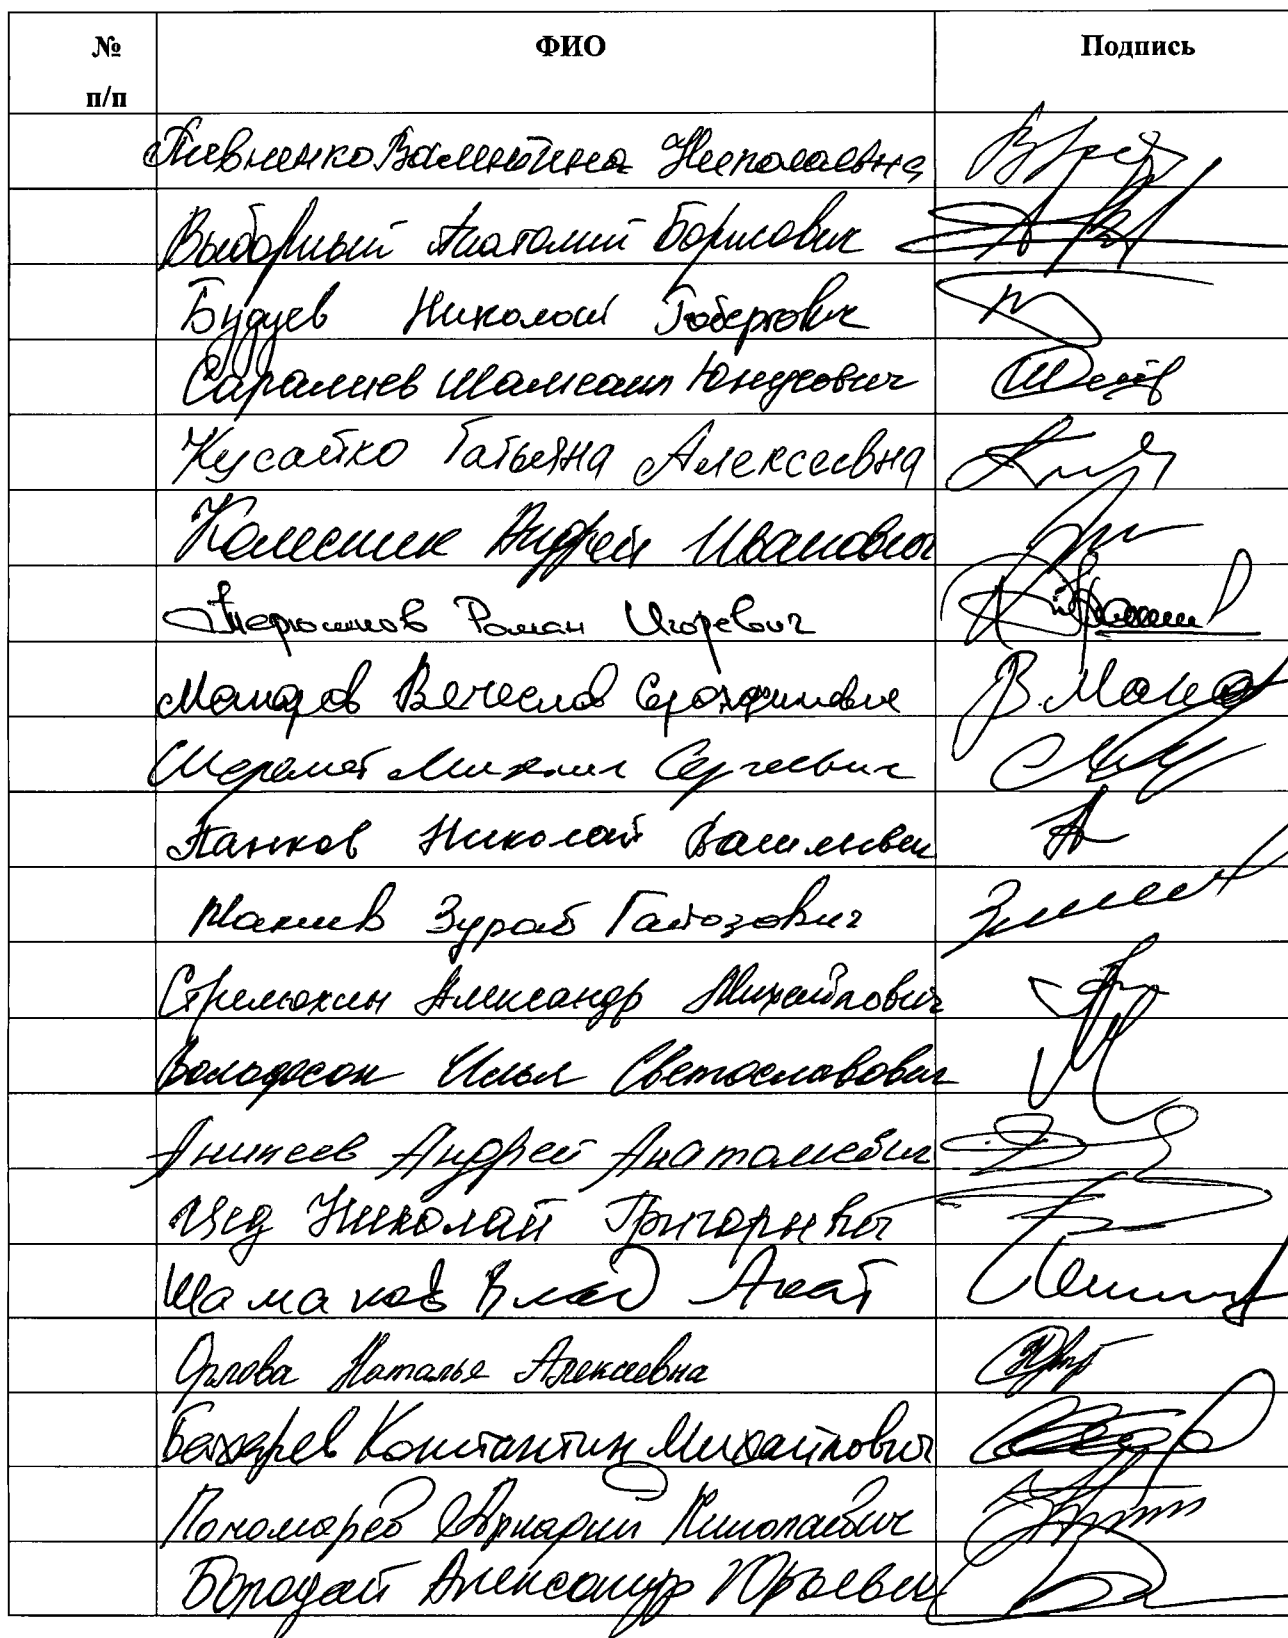 № п/п ФИО Подпись
Пивненко Валентина Николаевна
Выборный Анатолий Борисович
Будуев Николай Робертович
Саралиев Шамсаил Юнусович
Кусайко Татьяна Алексеевна
Колесник Андрей Иванович
Терюшков Роман Игоревич
Макаров Вячеслав Серафимович В. Мака
Шеремет Михаил Сергеевич
Панков Николай Васильевич
Макиев Зураб Гайозович
Стрелюхин Александр Михайлович
Вольфсон Илья Светославович
Аникеев Андрей Анатольевич
Цед Николай Григорьевич
Шаманов Влад Анат
Орлова Наталья Алексеевна
Бахарев Константин Михайлович
Пономарёв Аркадий Николаевич
Бородай Александр Юрьевич